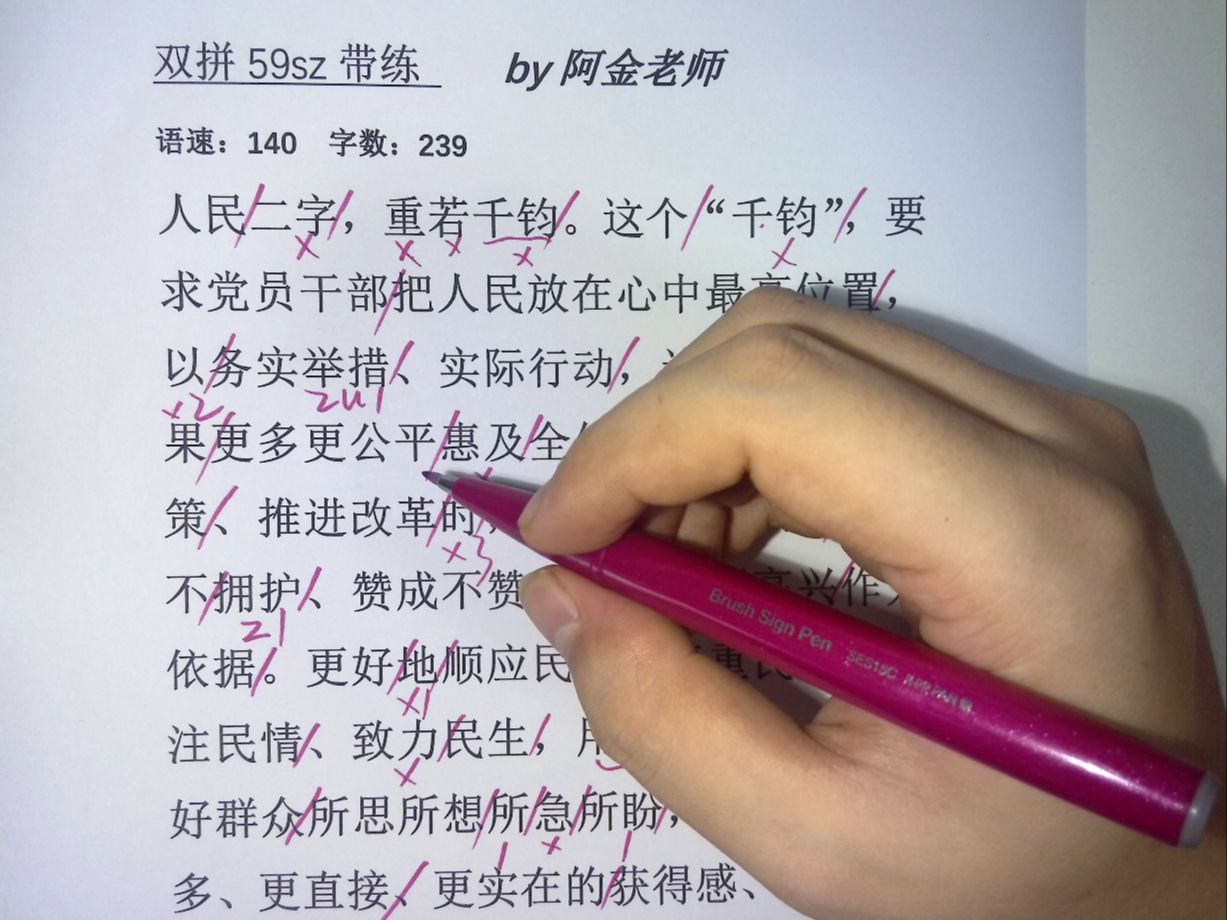 双拼 59sz 带练 by 阿金老师
语速：140 字数：239
人民二字，重若千钧。这个“千钧”，要
求党员干部把人民放在心中最高位置，
以务实举措、实际行动，
x2 zu1
果更多更公平惠及全
策、推进改革的
x3
不拥护、赞成不赞 高兴作
z1
依据。更好地顺应民 重民
x1
注民情、致力民生，用
好群众所思所想所急所盼，
多、更直接、更实在的获得感、
Brush Sign Pen SES15C